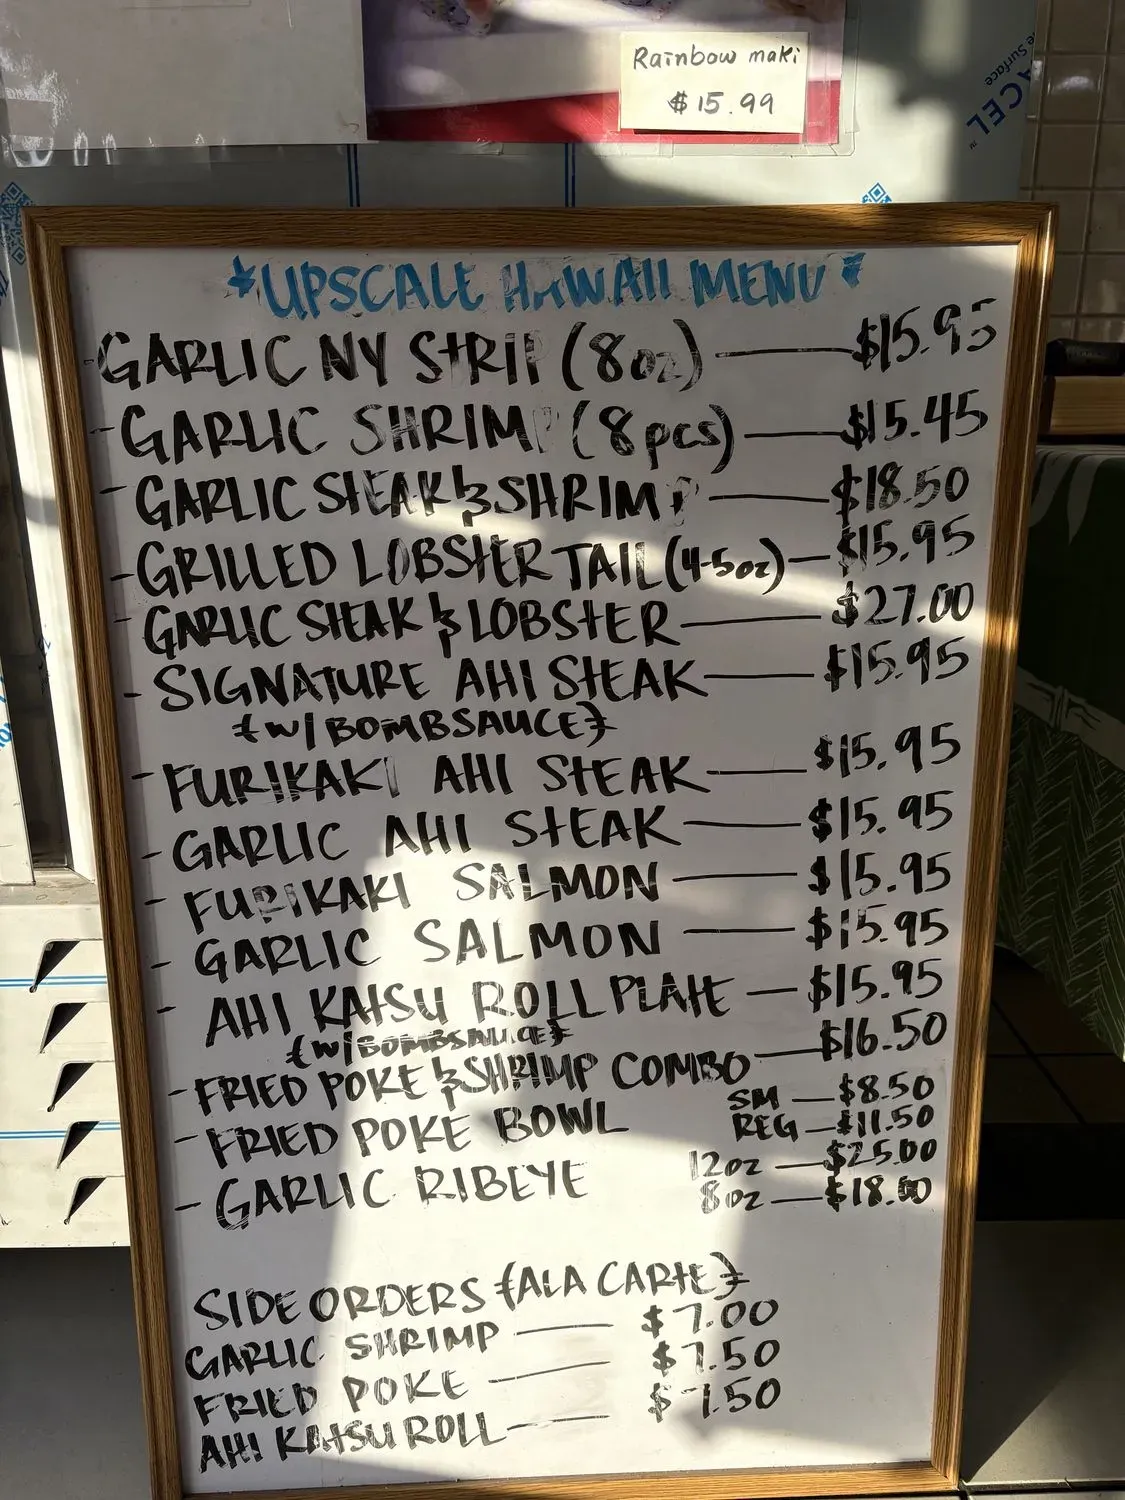 Rainbow maki
$15.99
e Surface
CEL
*UPSCALE HAWAII MENU*
- GARLIC NY STRIP (8oz) — $15.95
- GARLIC SHRIMP (8pcs) — $15.45
- GARLIC STEAK & SHRIMP — $18.50
- GRILLED LOBSTER TAIL (4-5oz) — $15.95
- GARLIC STEAK & LOBSTER — $27.00
- SIGNATURE AHI STEAK — $15.95
{W/BOMBSAUCE}
- FURIKAKI AHI STEAK — $15.95
- GARLIC AHI STEAK — $15.95
- FURIKAKI SALMON — $15.95
- GARLIC SALMON — $15.95
- AHI KATSU ROLL PLATE — $15.95
{W/BOMBSAUCE}
- FRIED POKE & SHRIMP COMBO — $16.50
- FRIED POKE BOWL SM — $8.50
REG — $11.50
- GARLIC RIBEYE 12oz — $25.00
8oz — $18.00
SIDE ORDERS {ALA CARTE}
GARLIC SHRIMP — $7.00
FRIED POKE — $7.50
AHI KATSU ROLL — $7.50